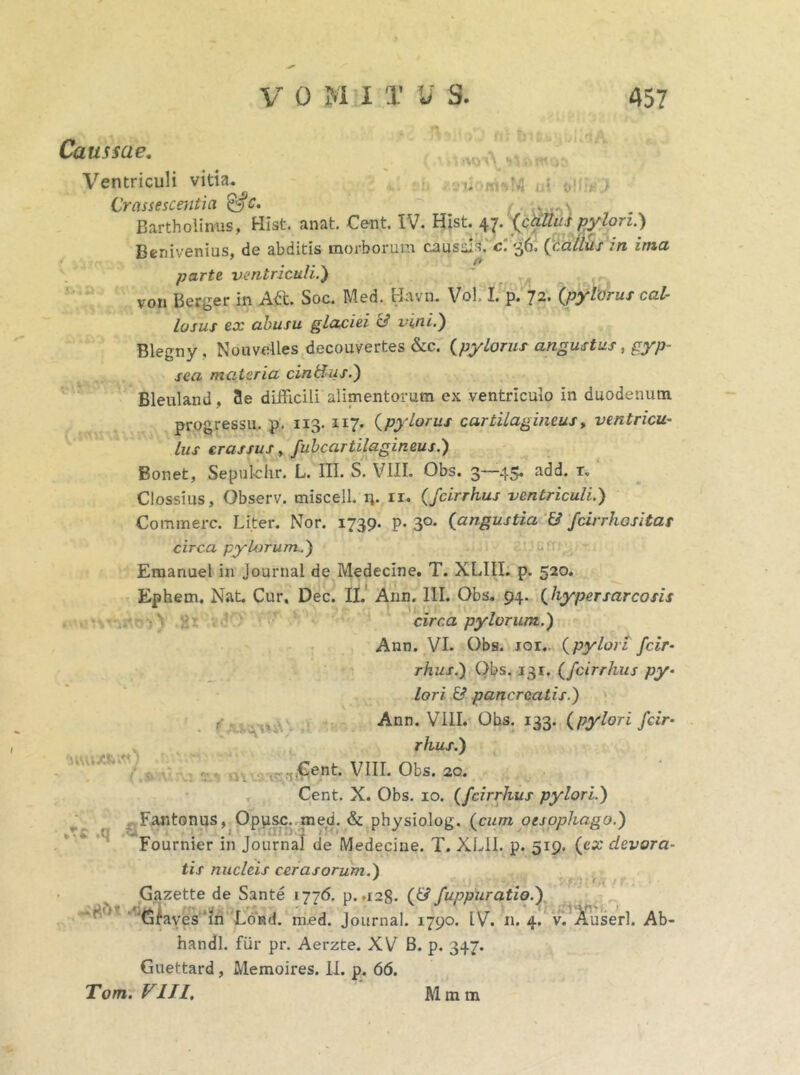 VOMITUS. 457
Caussae.
Ventriculi vitia.
Crassescentia &c.
Bartholinus, Hist. anat. Cent. IV. Hist. 47. (callus pylori.)
Benivenius, de abditis morborum causais. c. 36. (callus in ima
parte ventriculi.)
von Berger in Act. Soc. Med. Havn. Vol. I. p. 72. (pylorus cal-
losus ex abusu glaciei & vini.)
Blegny, Nouvelles decouvertes &c. (pylorus angustus, gyp-
sea materia cinctus.)
Bleuland, de difficili alimentorum ex ventriculo in duodenum
progressu. p. 113. 117. (pylorus cartilagineus, ventricu-
lus crassus, subcartilagineus.)
Bonet, Sepulchr. L. III. S. VIII. Obs. 3—45. add. 1.
Clossius, Observ. miscell. n. 11. (scirrhus ventriculi.)
Commerc. Liter. Nor. 1739. p. 30. (angustia & scirrhositas
circa pylorum.)
Emanuel in Journal de Medecine. T. XLIII. p. 520.
Ephem. Nat. Cur. Dec. II. Ann. III. Obs. 94. (hypersarcosis
circa pylorum.)
Ann. VI. Obs. 101. (pylori scir-
rhus.) Obs. 131. (scirrhus py-
lori & pancreatis.)
Ann. VIII. Obs. 133. (pylori scir-
rhus.)
Cent. VIII. Obs. 20.
Cent. X. Obs. 10. (scirrhus pylori.)
Fantonus, Opusc. med. & physiolog. (cum oesophago.)
Fournier in Journal de Medecine. T. XLII. p. 519. (ex devora-
tis nucleis cerasorum.)
Gazette de Santé 1776. p. 128. (& suppuratio.)
Graves in Lond. med. Journal. 1790. IV. n. 4. v. Auserl. Ab-
handl. für pr. Aerzte. XV B. p. 347.
Guettard, Memoires. II. p. 66.
Tom. VIII. Mmm